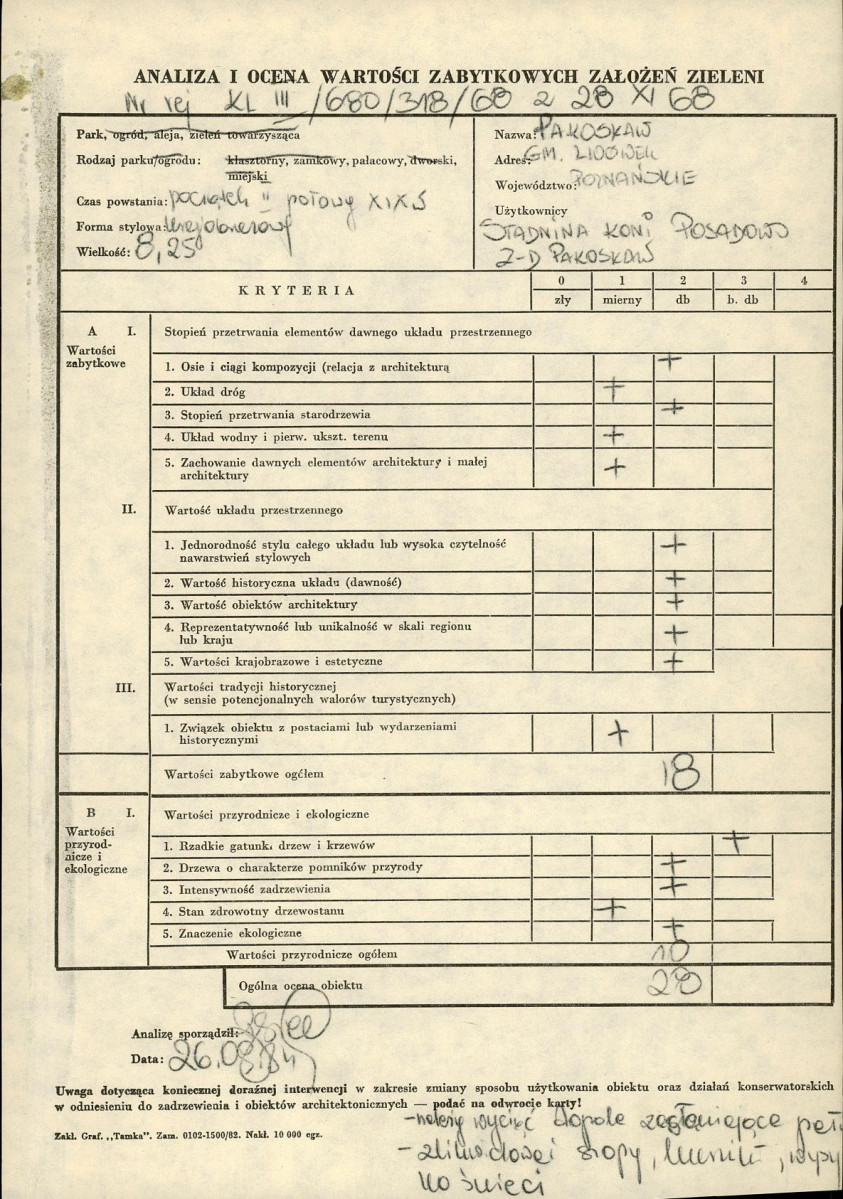 ANALIZA I OCENA WARTOŚCI ZABYTKOWYCH ZAŁOŻEŃ ZIELENI
Nr rej KL III /680/318/68 z 28 XI 68
Park, ogród, aleja, zieleń towarzysząca
Rodzaj parku/ogrodu: klasztorny, zamkowy, pałacowy, dworski,
miejski
Czas powstania: początek II połowy XIX w
Forma stylowa: krajobrazowy
Wielkość: 8,25
Nazwa: PAKOSŁAW
Adres: GM. LWÓWEK
Województwo: POZNAŃSKIE
Użytkownicy
STADNINA KONI POSADOWO
Z-D PAKOSŁAW
KRYTERIA
0 1 2 3 4
zły mierny db b. db
A I. Stopień przetrwania elementów dawnego układu przestrzennego
Wartości
zabytkowe
1. Osie i ciągi kompozycji (relacja z architekturą +
2. Układ dróg +
3. Stopień przetrwania starodrzewia +
4. Układ wodny i pierw. ukszt. terenu +
5. Zachowanie dawnych elementów architektury i małej
architektury +
II. Wartość układu przestrzennego
1. Jednorodność stylu całego układu lub wysoka czytelność
nawarstwień stylowych +
2. Wartość historyczna układu (dawność) +
3. Wartość obiektów architektury +
4. Reprezentatywność lub unikalność w skali regionu
lub kraju +
5. Wartości krajobrazowe i estetyczne +
III. Wartości tradycji historycznej
(w sensie potencjonalnych walorów turystycznych)
1. Związek obiektu z postaciami lub wydarzeniami
historycznymi +
Wartości zabytkowe ogółem 18
B I. Wartości przyrodnicze i ekologiczne
Wartości
przyrod-
nicze i
ekologiczne
1. Rzadkie gatunki drzew i krzewów +
2. Drzewa o charakterze pomników przyrody +
3. Intensywność zadrzewienia +
4. Stan zdrowotny drzewostanu +
5. Znaczenie ekologiczne +
Wartości przyrodnicze ogółem 10
Ogólna ocena obiektu 28
Analizę sporządził:
Data: 26.08.84
Uwaga dotycząca koniecznej doraźnej interwencji w zakresie zmiany sposobu użytkowania obiektu oraz działań konserwatorskich
w odniesieniu do zadrzewienia i obiektów architektonicznych — podać na odwrocie karty!
- należy wyciąć topole zasłaniające pał
Zakł. Graf. „Tamka". Zam. 0102-1500/82. Nakł. 10 000 egz.
- szopy, kurniki, wysy
śmieci